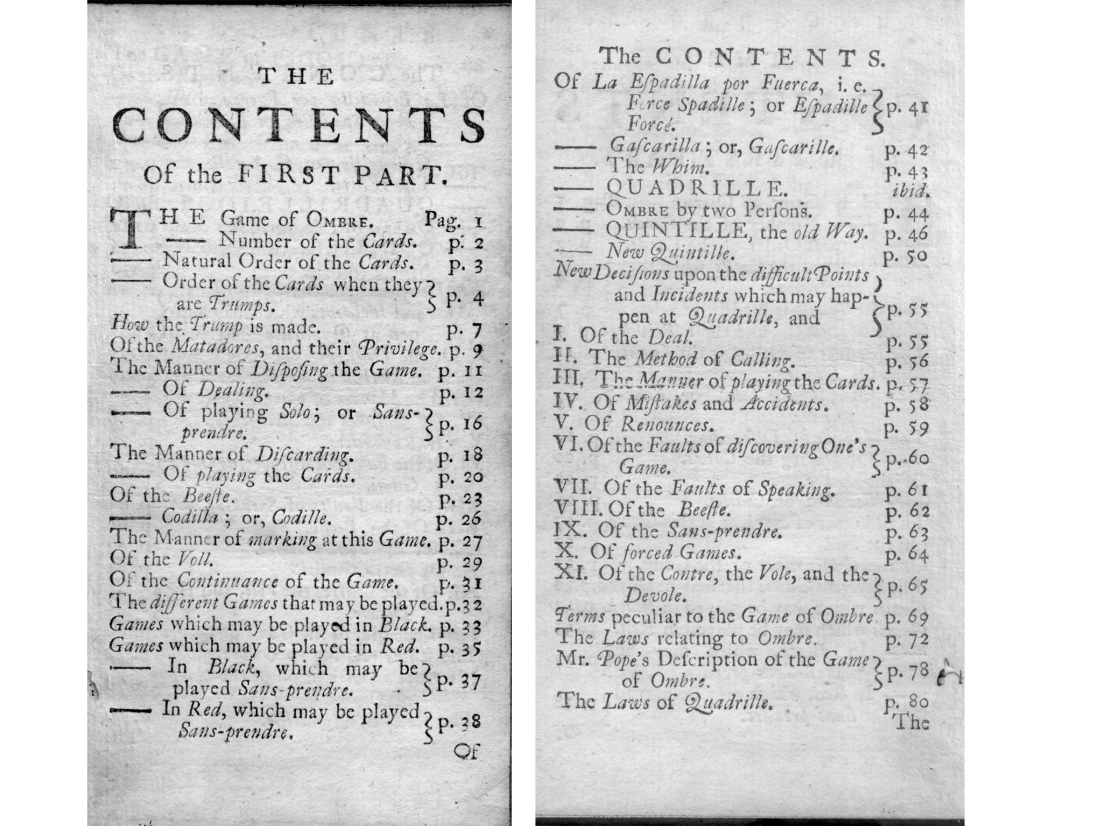 THE
CONTENTS
Of the FIRST PART.
THE Game of OMBRE. Pag. 1
—— Number of the Cards. p. 2
—— Natural Order of the Cards. p. 3
—— Order of the Cards when they
are Trumps. p. 4
How the Trump is made. p. 7
Of the Matadores, and their Privilege. p. 9
The Manner of Diſpoſing the Game. p. 11
—— Of Dealing. p. 12
—— Of playing Solo; or Sans-
prendre. p. 16
The Manner of Diſcarding. p. 18
—— Of playing the Cards. p. 20
Of the Beeſte. p. 23
—— Codilla; or, Codille. p. 26
The Manner of marking at this Game. p. 27
Of the Voll. p. 29
Of the Continuance of the Game. p. 31
The different Games that may be played. p. 32
Games which may be played in Black. p. 33
Games which may be played in Red. p. 35
—— In Black, which may be
played Sans-prendre. p. 37
—— In Red, which may be played
Sans-prendre. p. 38
Of
The CONTENTS.
Of La Eſpadilla por Fuerca, i. e.
Force Spadille; or Eſpadille p. 41
Forcé.
—— Gaſcarilla; or, Gaſcarille. p. 42
—— The Whim. p. 43
—— QUADRILLE. ibid.
—— OMBRE by two Perſons. p. 44
—— QUINTILLE, the old Way. p. 46
—— New Quintille. p. 50
New Deciſions upon the difficult Points
and Incidents which may hap-
pen at Quadrille, and p. 55
I. Of the Deal. p. 55
II. The Method of Calling. p. 56
III. The Manner of playing the Cards. p. 57
IV. Of Miſtakes and Accidents. p. 58
V. Of Renounces. p. 59
VI. Of the Faults of diſcovering One's
Game. p. 60
VII. Of the Faults of Speaking. p. 61
VIII. Of the Beeſte. p. 62
IX. Of the Sans-prendre. p. 63
X. Of forced Games. p. 64
XI. Of the Contre, the Vole, and the
Devole. p. 65
Terms peculiar to the Game of Ombre p. 69
The Laws relating to Ombre. p. 72
Mr. Pope's Deſcription of the Game
of Ombre. p. 78
The Laws of Quadrille. p. 80
The